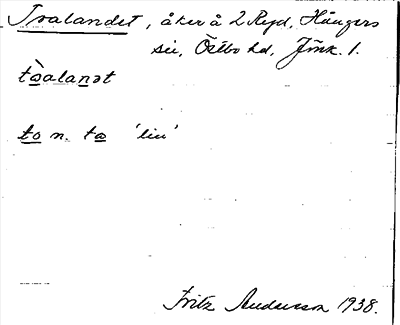 Toalandet, åker å 2 Ryd, Hångers
sn, Östbo hd, Jönk. l.
tòalanət
to n. tɷ 'lin'
Fritz Andersson 1938.